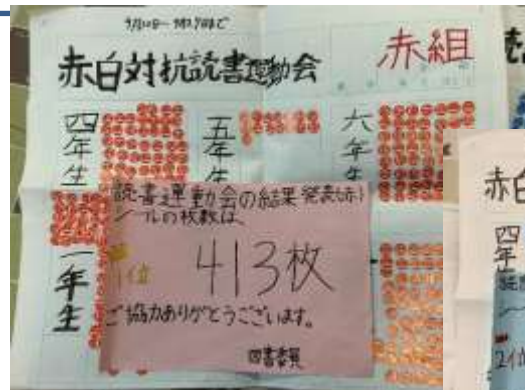 赤白対抗読書運動会
赤組
四年生
五年生
六年生
一年生
読書運動会の結果発表(赤)
シールの枚数は、
1位
413枚
ご協力ありがとうございます。
図書委員
赤白
四年
2位